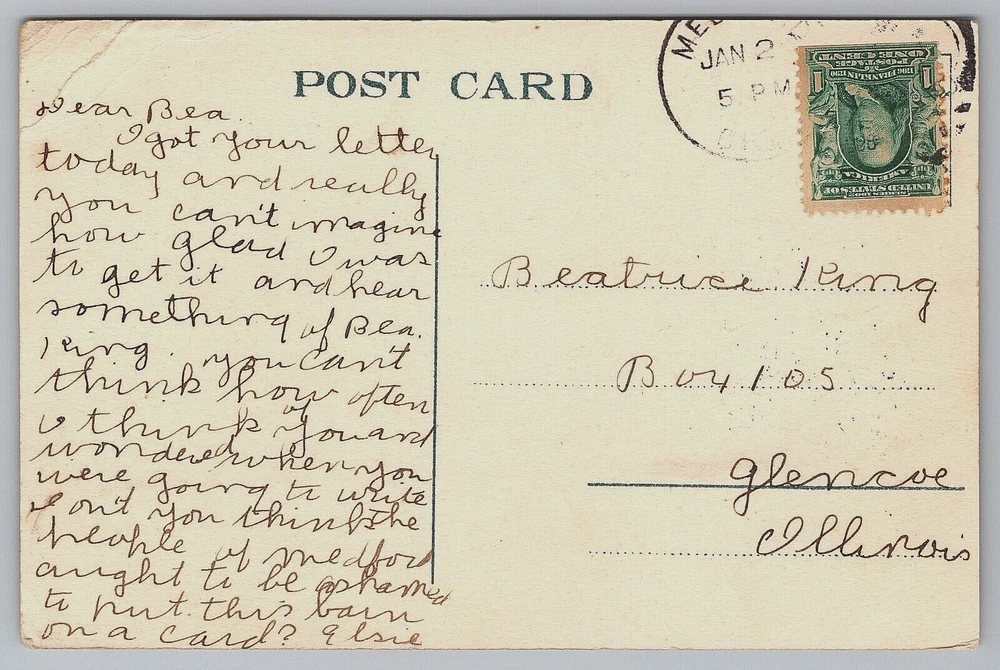 POST CARD
MED
JAN 2
5 PM
SERIES 1902
UNITED STATES OF
AMERICA
1706 FRANKLIN 1790
1 1
POSTAGE
ONE CENT
Dear Bea.
I got your letter
today and really
you can't imagine
how glad I was
to get it and hear
something of Bea.
King. you can't
think how often
I think of you and
wondered when you
were going to write
Don't you think the
people of medford
aught to be ashamed
to put this barn
on a card? Elsie
Beatrice King
Box 105
Glencoe
Illinois